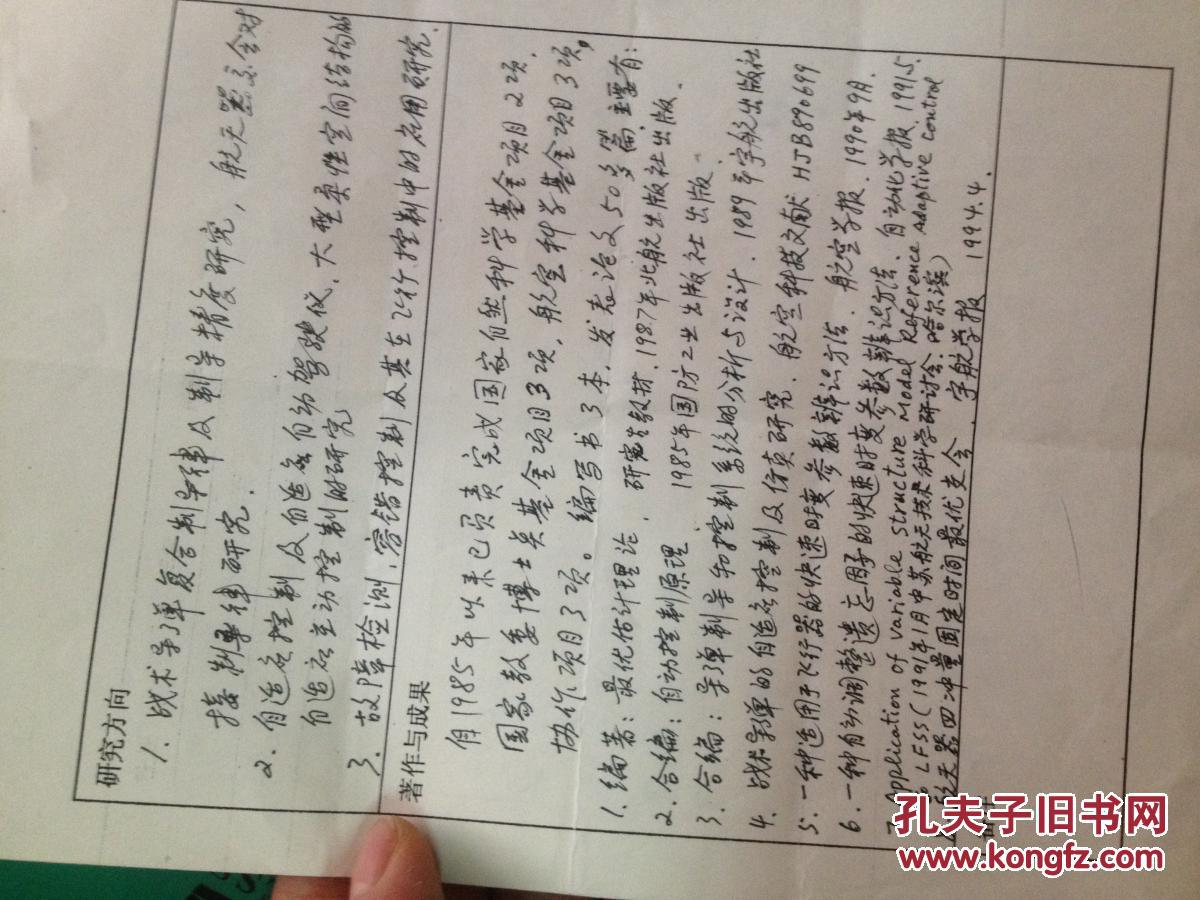 研究方向
1. 战术导弹复合制导律及制导精度研究，航天器交会对
接制导律研究.
2. 自适应控制及自适应自动驾驶仪、大型柔性空间结构的
自适应主动控制的研究
3. 故障检测，容错控制及其在飞行控制中的应用研究.
著作与成果
自1985年以来已负责完成国家自然科学基金项目2项.
国家教委博士类基金项目3项，航空科学基金项目3项，
协作项目3项。编写书3本，发表论文50多篇，主要有：
1. 编著：最优估计理论， 研究生教材，1987年北航出版社出版.
2. 合编：自动控制原理 1985年国防工业出版社出版.
3. 合编：导弹制导和控制系统的分析与设计．1989年宇航出版社
4. 战术导弹的自适应控制及仿真研究．航空科技文献 HJB890699
5. 一种适用于飞行器的快速时变参数辨识方法．航空学报．1990年9月.
6. 一种自动调整遗忘因子的快速时变参数辨识方法、自动化学报，1991.5.
7. Application of variable structure Model Reference Adaptive Control
LFSS (1991年1月中苏航天技术科学研讨会.哈尔滨)
航天器四冲量固定时间最优交会．宇航学报 1994.4.
孔夫子旧书网
www.kongfz.com